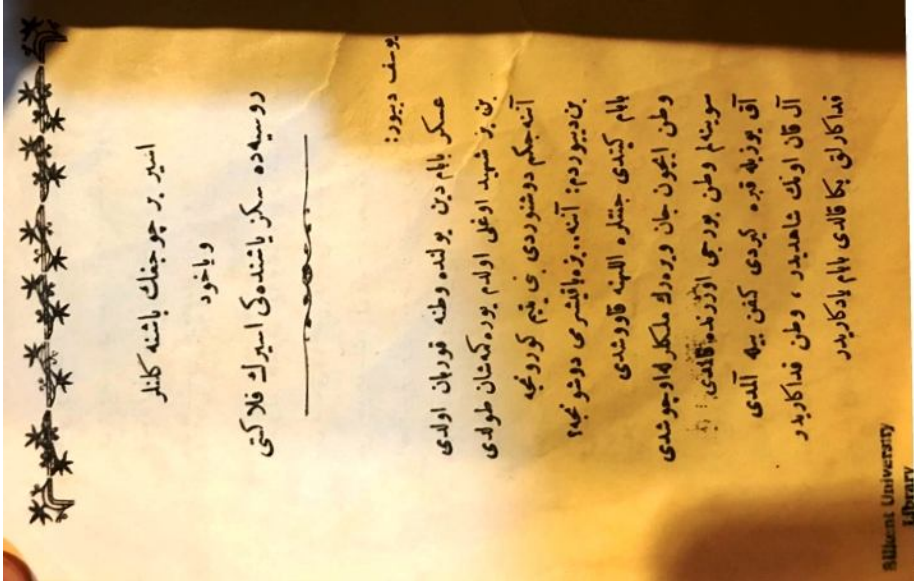 اسير بر چوجغك باشنه كلنلر
وياخود
روسيه‌ده سكز ياشنده‌كى اسيرك فلاكتى
يوسف ديیور:
عسكر بابام دين يولنده وطنه قوربان اولدى
بن بر شهيد اوغلى اولدم يوره‌كمه شان طولدى
آننه‌جكم دوشنوردى بنى يتيم كورونجه
بن ديیوردم: آننه.. بزه ياقيشیرمى دوشونجه؟
بابام كيتدى جنتلره اللهينه قاووشدى
وطن ايچون جان ويره‌رك ملكلرله اوچوشدى
سوينه‌لم وطن بورجى اوزرنده قالمدى
آق يوزيله قبره كيردى كفن بيله آلمدى
آل قان اونك شاهديدر ، وطن فداكاريدر
فداكارلق بكا قالدى بابام يادكاريدر
Bilkent University
Library